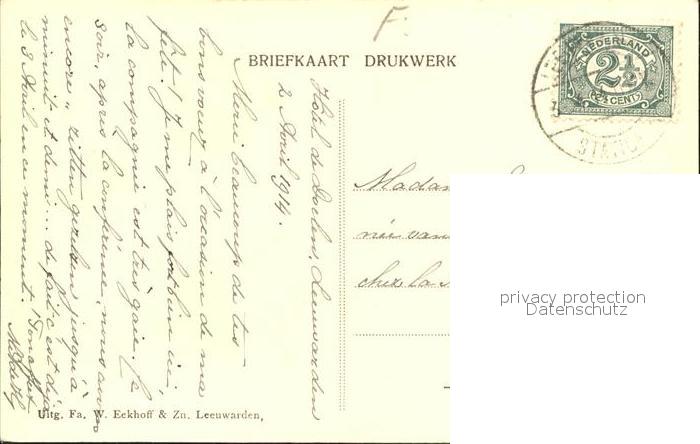 F.
BRIEFKAART DRUKWERK
NEDERLAND
2½
(2½ CENT)
Hôtel de Doelen, Leeuwarden
2 Avril 1914.
Merci beaucoup de tes
bons voeux à l'occasion de ma
fête! Je me plais fort bien ici,
la compagnie est très gaie. Ce
soir, après la conférence, nous avons
encore „zitten gezellen" jusqu'à
minuit et demi... de fait c'est déjà
le 3 Avril en ce moment!
Madam
née van
chez la
privacy protection
Datenschutz
Uitg. Fa. W. Eekhoff & Zn. Leeuwarden,